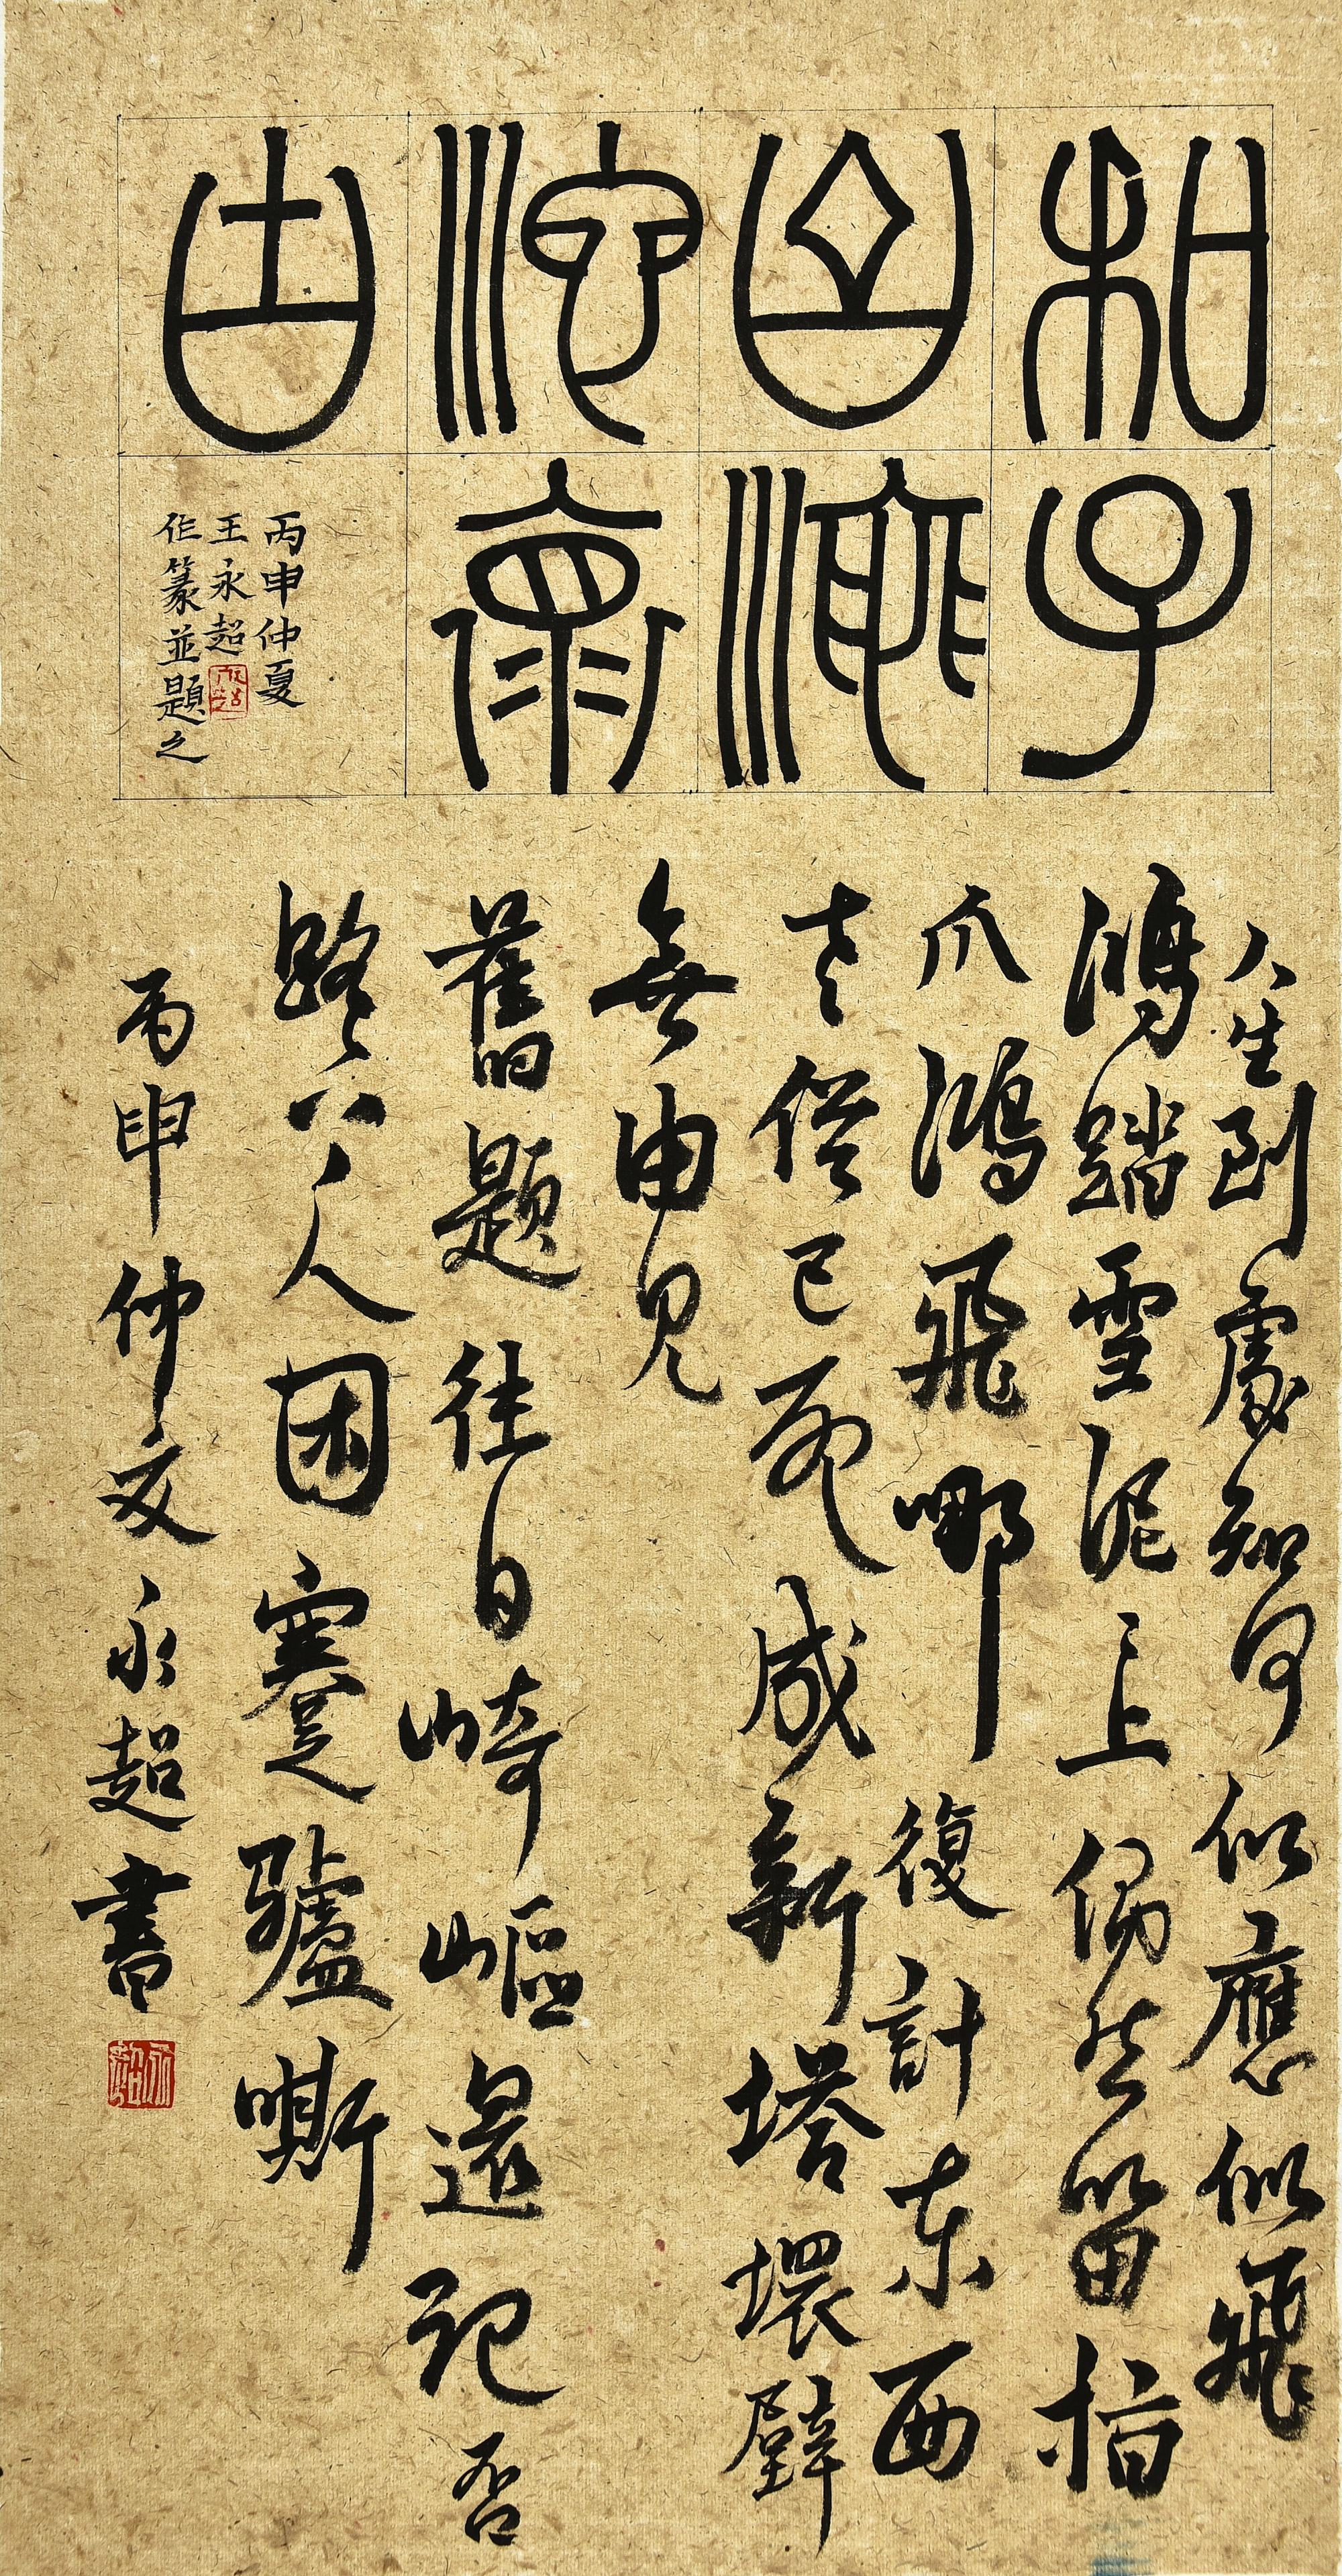 和子
由澠
池懷
丙申仲夏
王永超
作篆並題之
人生到處知何似應似飛
鴻踏雪泥上偶然留指
爪鴻飛哪復計東西
老僧已死成新塔壞壁
無由見
舊題往日崎嶇還記否
路長人困蹇驢嘶
丙申仲夏永超書